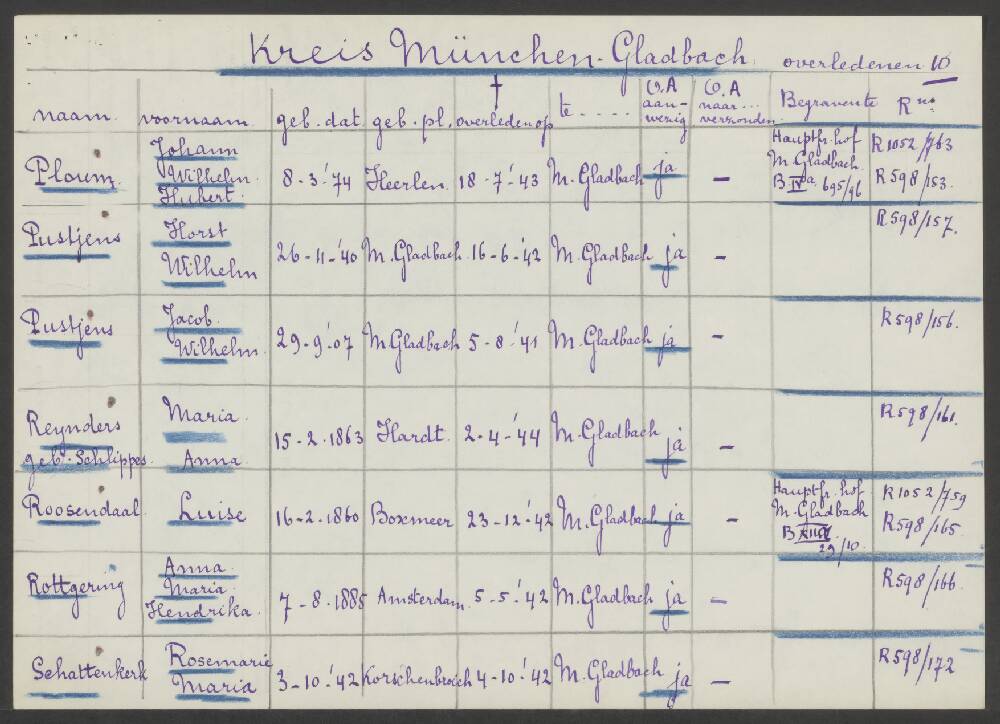 Kreis München-Gladbach overledenen 10
naam. voornaam. geb. dat geb. pl. † overleden op te..... O.A aanwezig O.A naar... verzonden. Begraven te R nos
Ploum. Johann Wilhelm. Hubert. 8-3-'74 Heerlen. 18-7-'43 M. Gladbach ja - Hauptfr. hof M. Gladbach. B IV a. 695/96 R 1052/763 R 598/153.
Pustjens Horst Wilhelm 26-11-'40 M. Gladbach. 16-6-'42 M. Gladbach ja - R 598/157.
Pustjens Jacob. Wilhelm. 29-9-'07 M. Gladbach 5-8-'41 M. Gladbach ja - R 598/156.
Reynders geb. Schlippes. Maria. Anna. 15-2-1863 Hardt. 2-4-'44 M. Gladbach ja - R 598/161.
Roosendaal Luise 16-2-1860 Boxmeer 23-12-'42 M. Gladbach ja - Hauptfr. hof M. Gladbach B 29/10. R 1052/759 R 598/165.
Rottgering Anna. Maria. Hendrika. 7-8-1885 Amsterdam. 5-5-'42 M. Gladbach ja - R 598/166.
Schattenkerk Rosemarie Maria 3-10-'42 Korschenbroich 4-10-'42 M. Gladbach ja - R 598/172